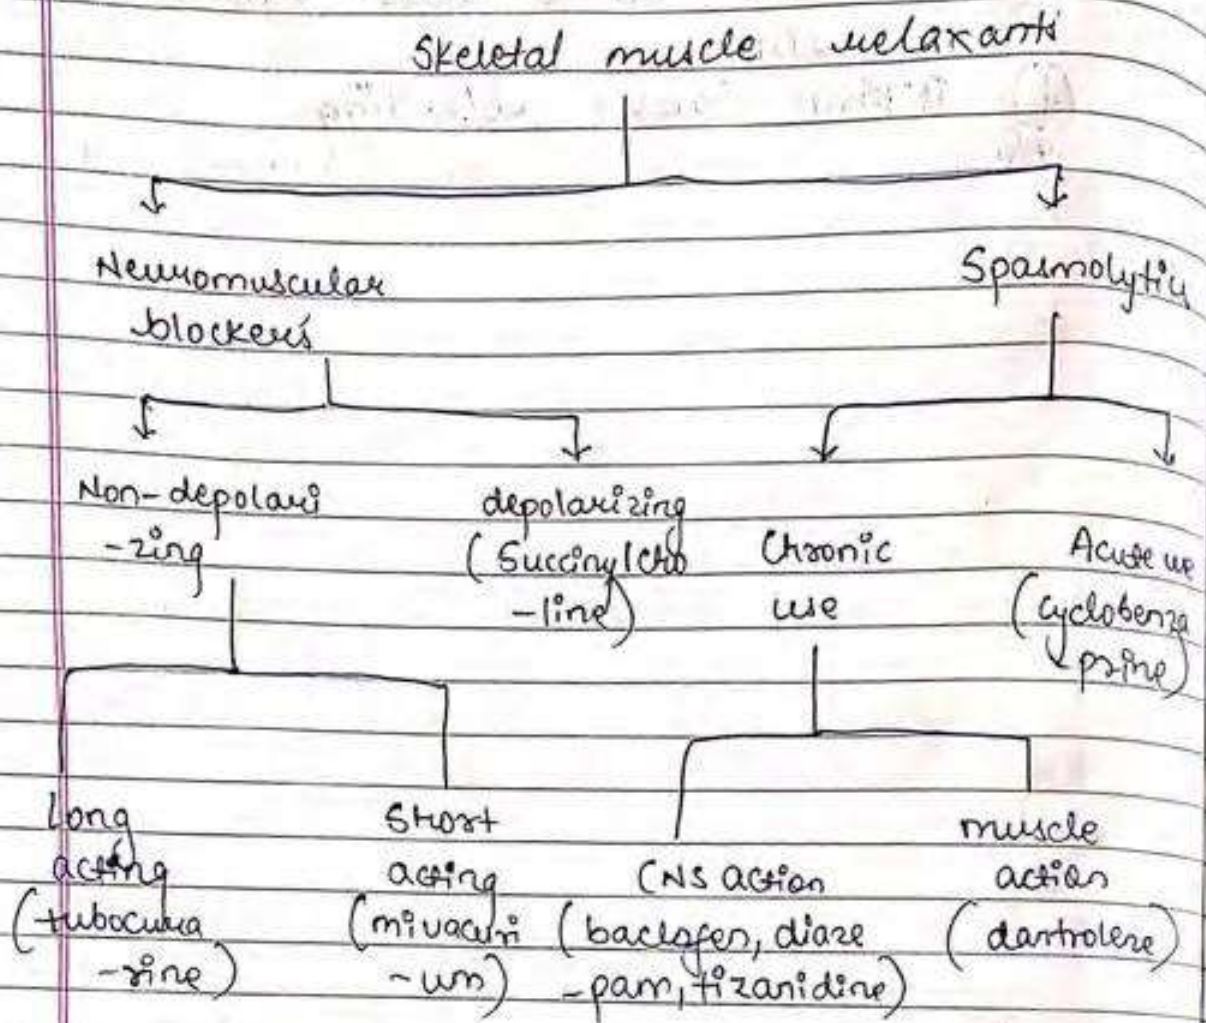 Skeletal muscle relaxants
Neuromuscular
blockers
Spasmolytics
Non-depolari
-zing
depolarizing
(Succinylcho
-line)
Chronic
use
Acute use
(cyclobenza
prine)
Long
acting
(tubocura
-rine)
Short
acting
(mivacuri
-um)
CNS action
(baclofen, diaze
-pam, tizanidine)
muscle
action
(dantrolene)